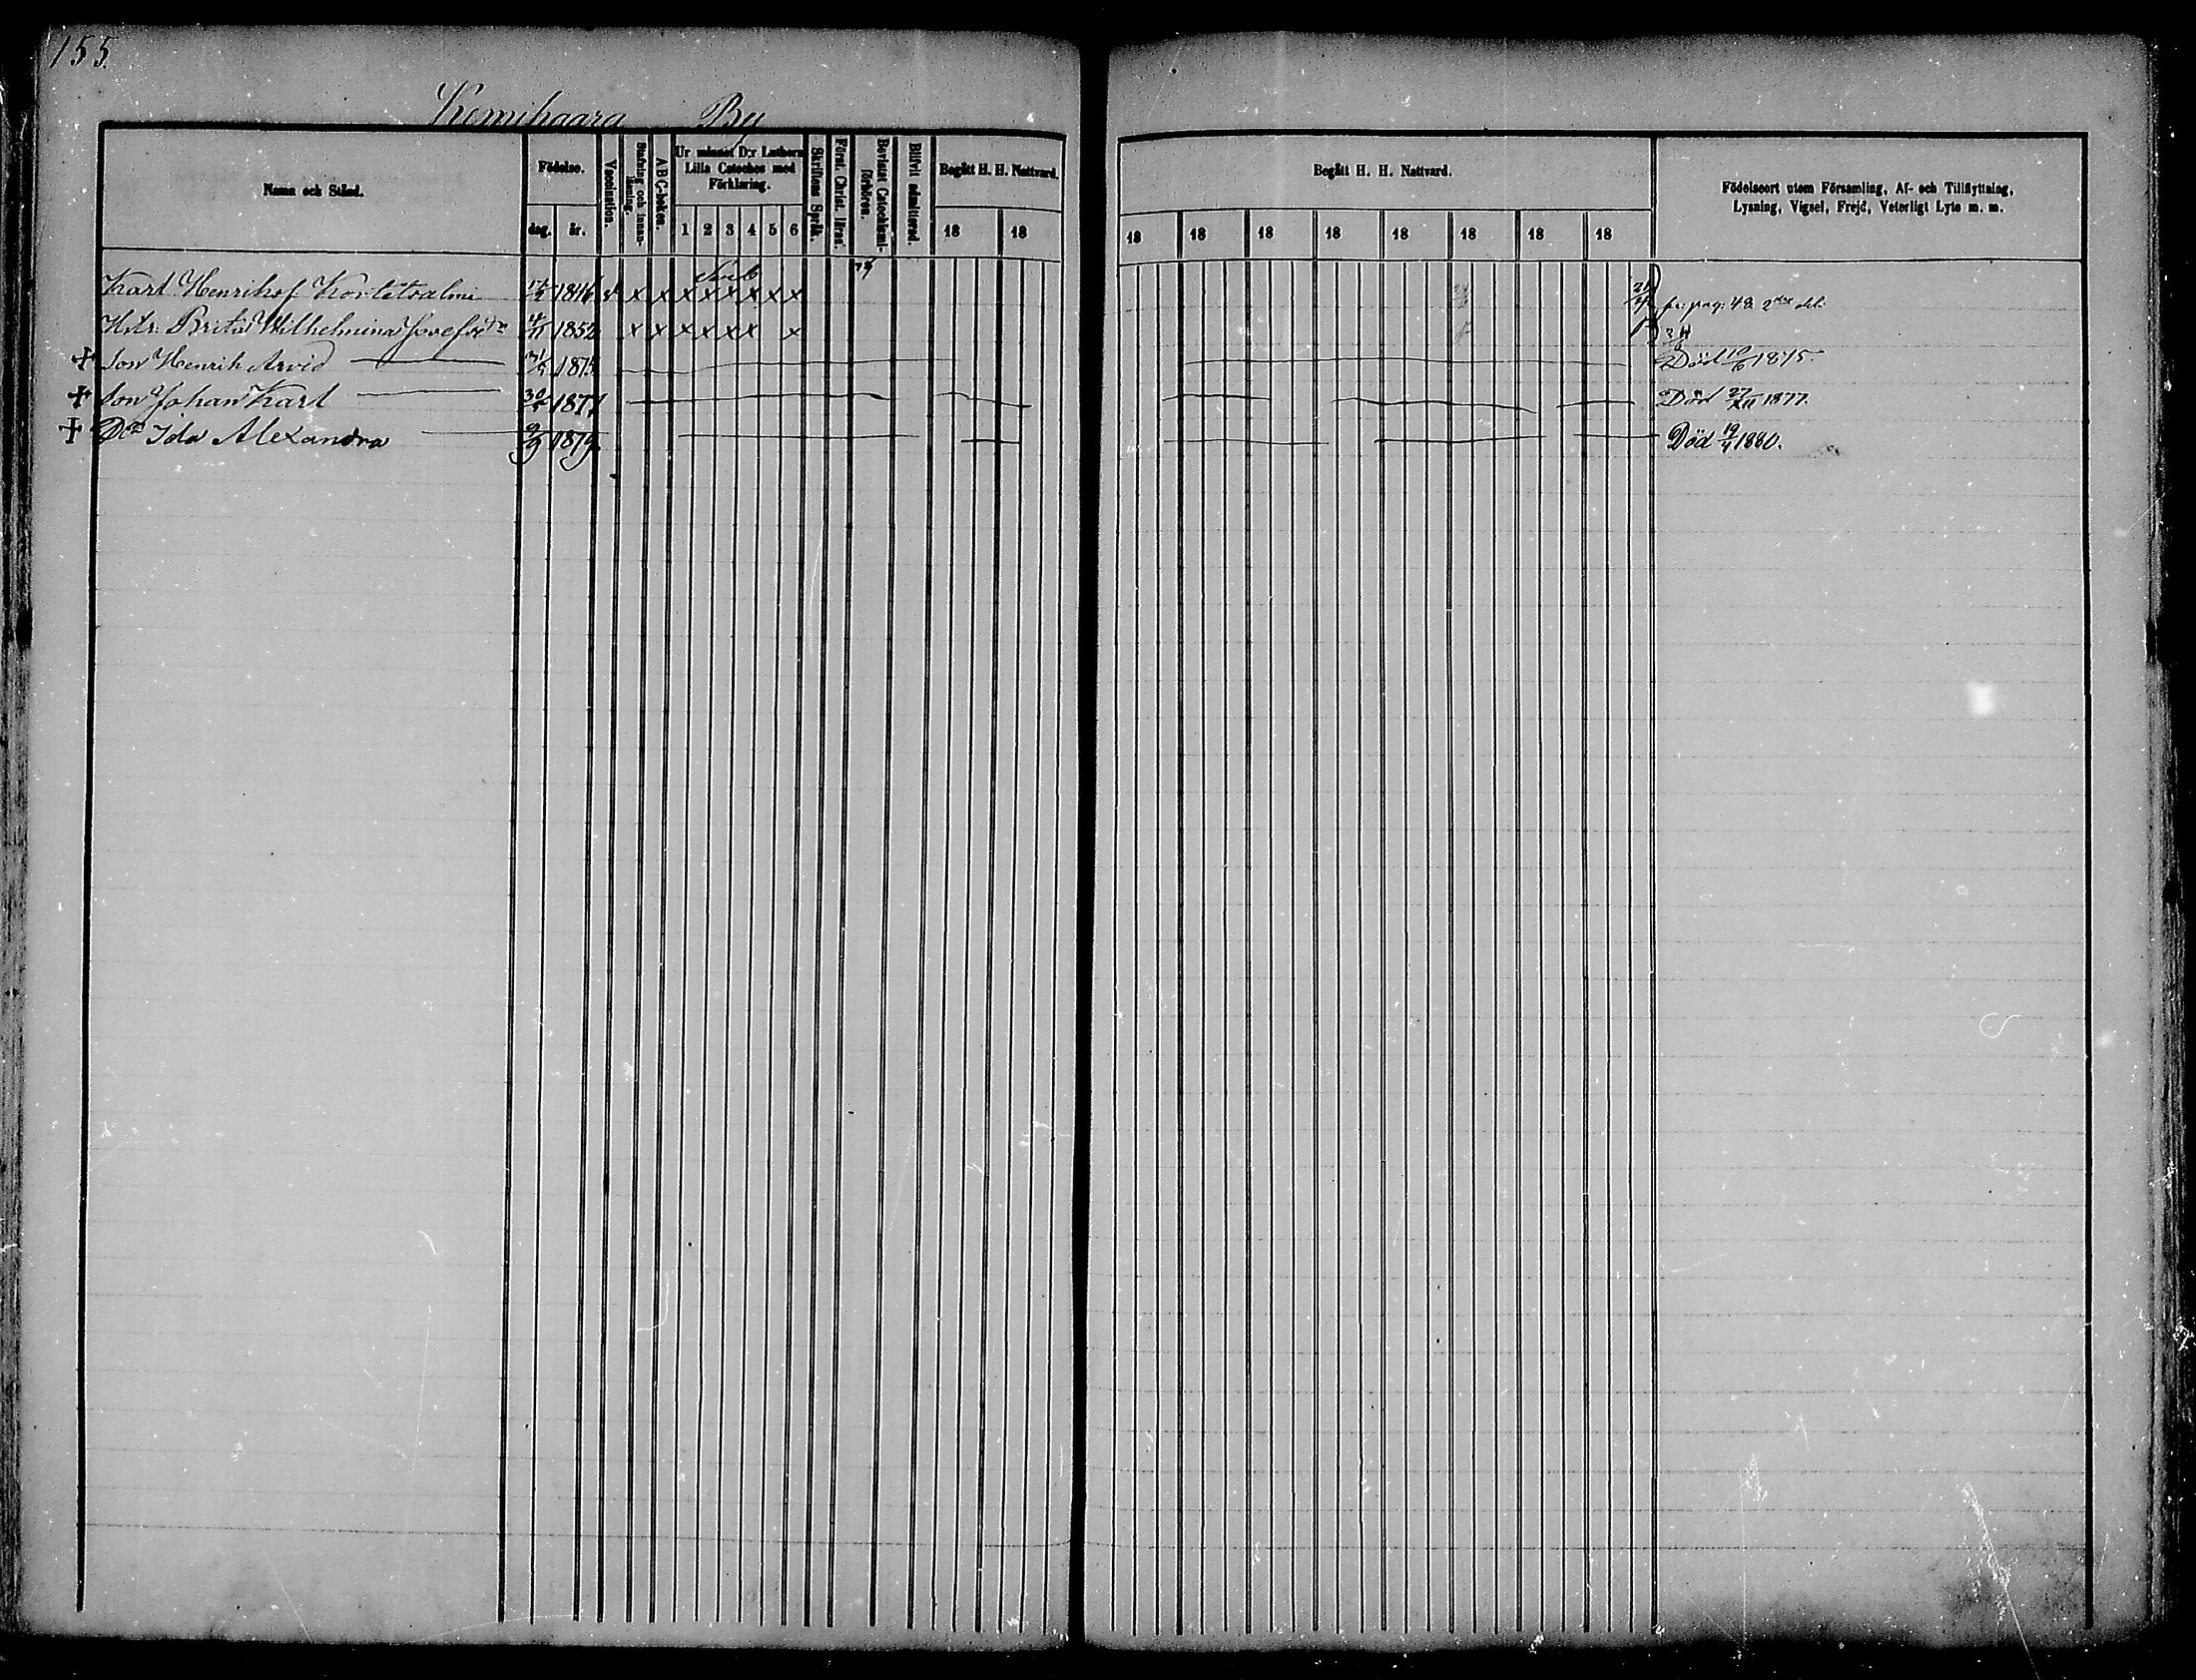 155.
Kemihaara By
Namn och Stånd.
Födelse.
dag. år.
Vaccination.
Stafning och Innanläsning.
ABC-boken.
Ur minnet D:r Luthers Lilla Cateches med Förklaring.
1 2 3 4 5 6
Skriftens Språk.
Först. Christ. läran.
Bevistat Catechismiförhören.
Blifvit admitterad.
Begått H. H. Nattvard.
18 18
Begått H. H. Nattvard.
18 18 18 18 18 18 18 18
Födelseort utom Församling, Af- och Tillflyttning, Lysning, Vigsel, Frejd, Veterligt Lyte m. m.
Karl Henriksf. Kortetsalmi 17/2 1846 x x x x x x x x pag: 48 2 del.
H:tr: Brita Wilhelmina Josefsd:r 4/11 1852 x x x x x x x
+ Son Henrik Arvid 1875 Död 10/6 1875.
+ Son Johan Karl 30/5 1877 Död 27/XII 1877.
+ D:r Ida Alexandra 9/9 1879 Död 19/4 1880.